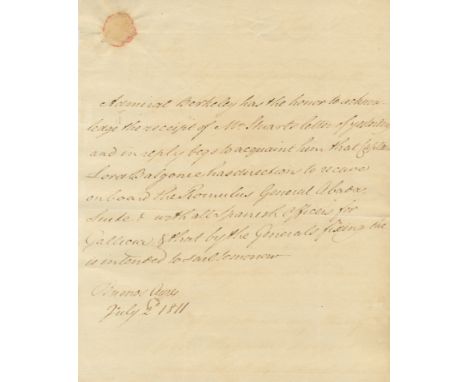 Admiral Berkeley has the honor to acknow
ledge the receipt of Mr Stuarts letter of yesterday
and in reply begs to acquaint him that Captain
Lord Balgonie has direction to receive
on board the Romulus General Abadia
Suite & with all Spanish Officers for
Gallicia & that by the Generals fixing he
is intended to sail tomorrow
Buenos Ayres
July 2d 1811